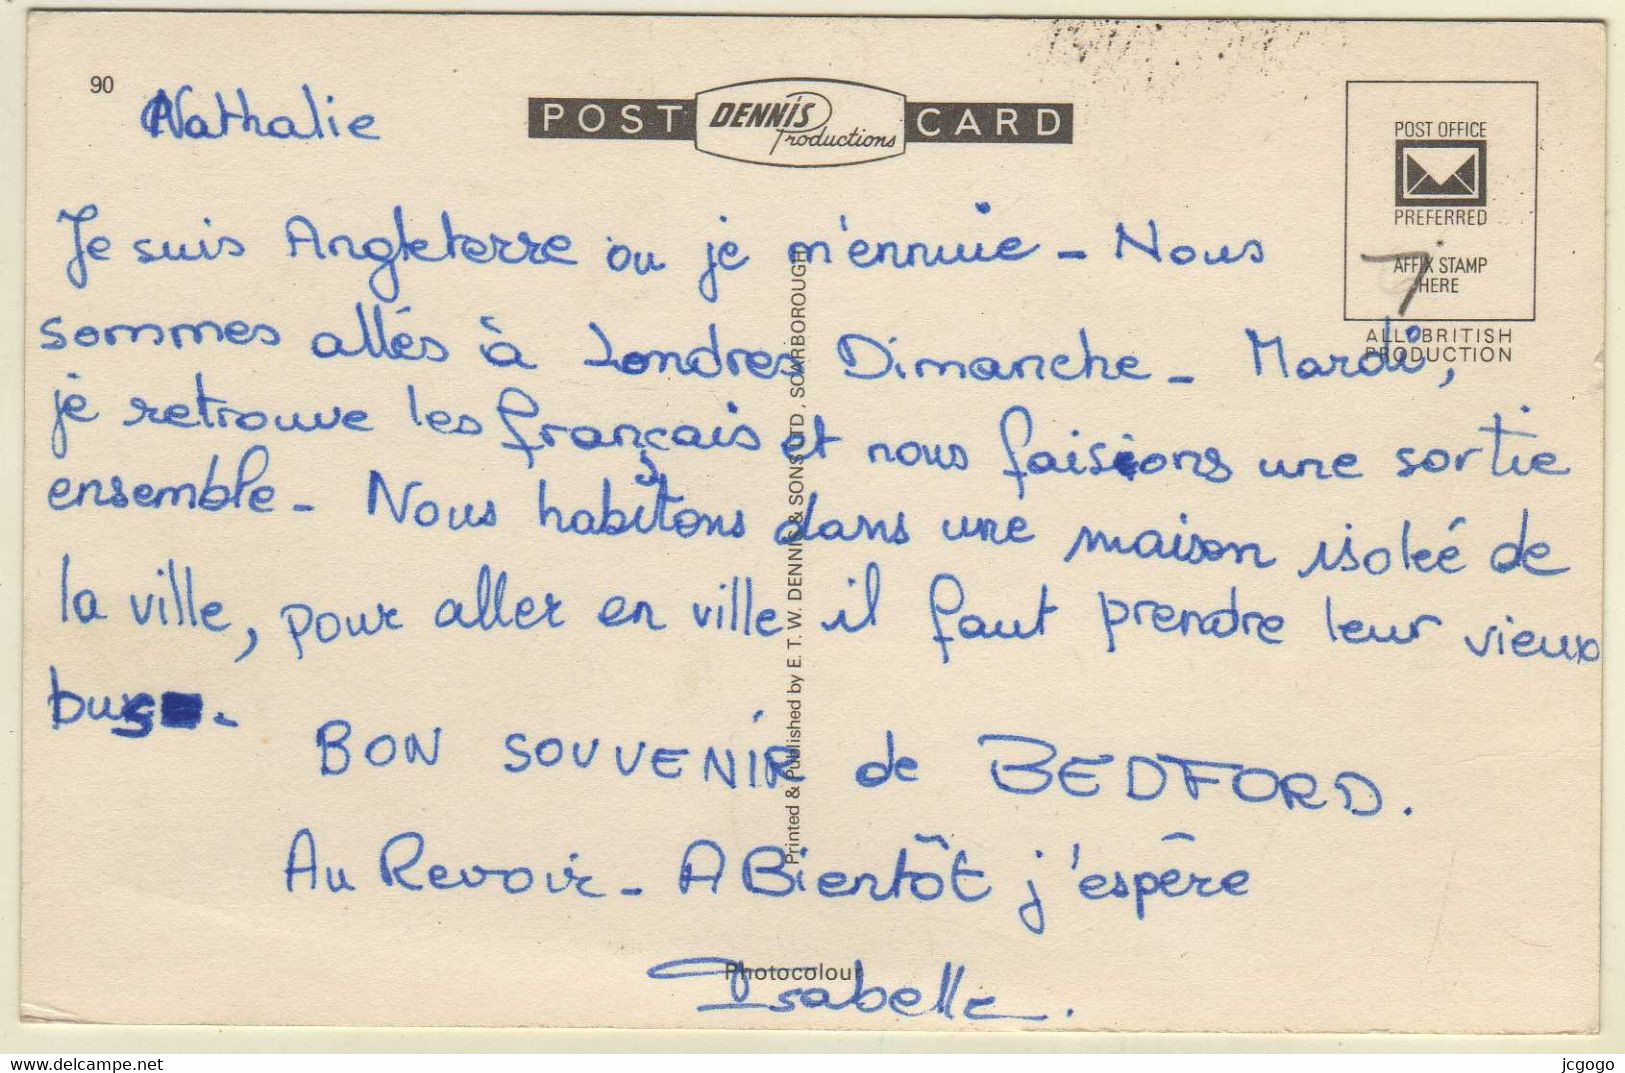 90
POST DENNIS Productions CARD
POST OFFICE
PREFERRED
*
AFFIX STAMP
HERE
ALL BRITISH
PRODUCTION
7
Nathalie
Je suis Angleterre ou je m'ennuie - Nous
sommes allés à Londres Dimanche - Mardi,
je retrouve les français et nous faisions une sortie
ensemble - Nous habitons dans une maison isolée de
la ville, pour aller en ville il faut prendre leur vieux
bus -
BON SOUVENIR de BEDFORD.
Au Revoir - A Bientôt j'espère
Isabelle.
Printed & Published by E. T. W. DENNIS & SONS LTD., SCARBOROUGH
Photocolour
Delcampe.net
jcgogo